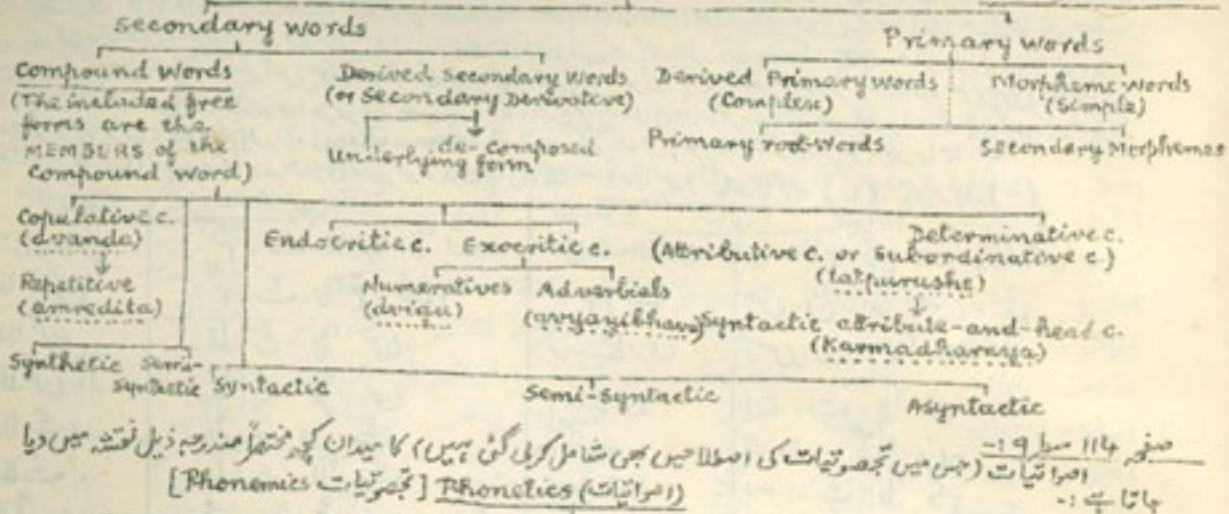 Secondary words
Primary words
Compound words
(The included free
forms are the
MEMBERS of the
Compound word)
Derived Secondary Words
(or Secondary Derivative)
Underlying form
de-composed
Derived Primary Words
(Complex)
Morpheme Words
(Simple)
Primary root-words
Secondary Morphemes
Copulative c.
(dvanda)
Repetitive
(amredita)
Endocritic c. Exocritic c.
Numeratives
(dvigu)
Adverbials
(avyayibhava)
Determinative c.
(Attributive c. or Subordinative c)
(tatpurushe)
Syntactic attribute-and-head c.
(Karmadharaya)
Synthetic Semi-
Syntactic Syntactic
Semi-Syntactic
Asyntactic
صفحہ 114 سطر 9 :-
اصواتیات (جس میں تجصوتیات کی اصطلاحیں بھی شامل کرلی گئی ہیں) کا میدان کچھ مختصراً مندرجہ ذیل نقشہ میں دیا
جاتا ہے :-
[Phonemics تجصوتیات] Phonetics (اصواتیات)